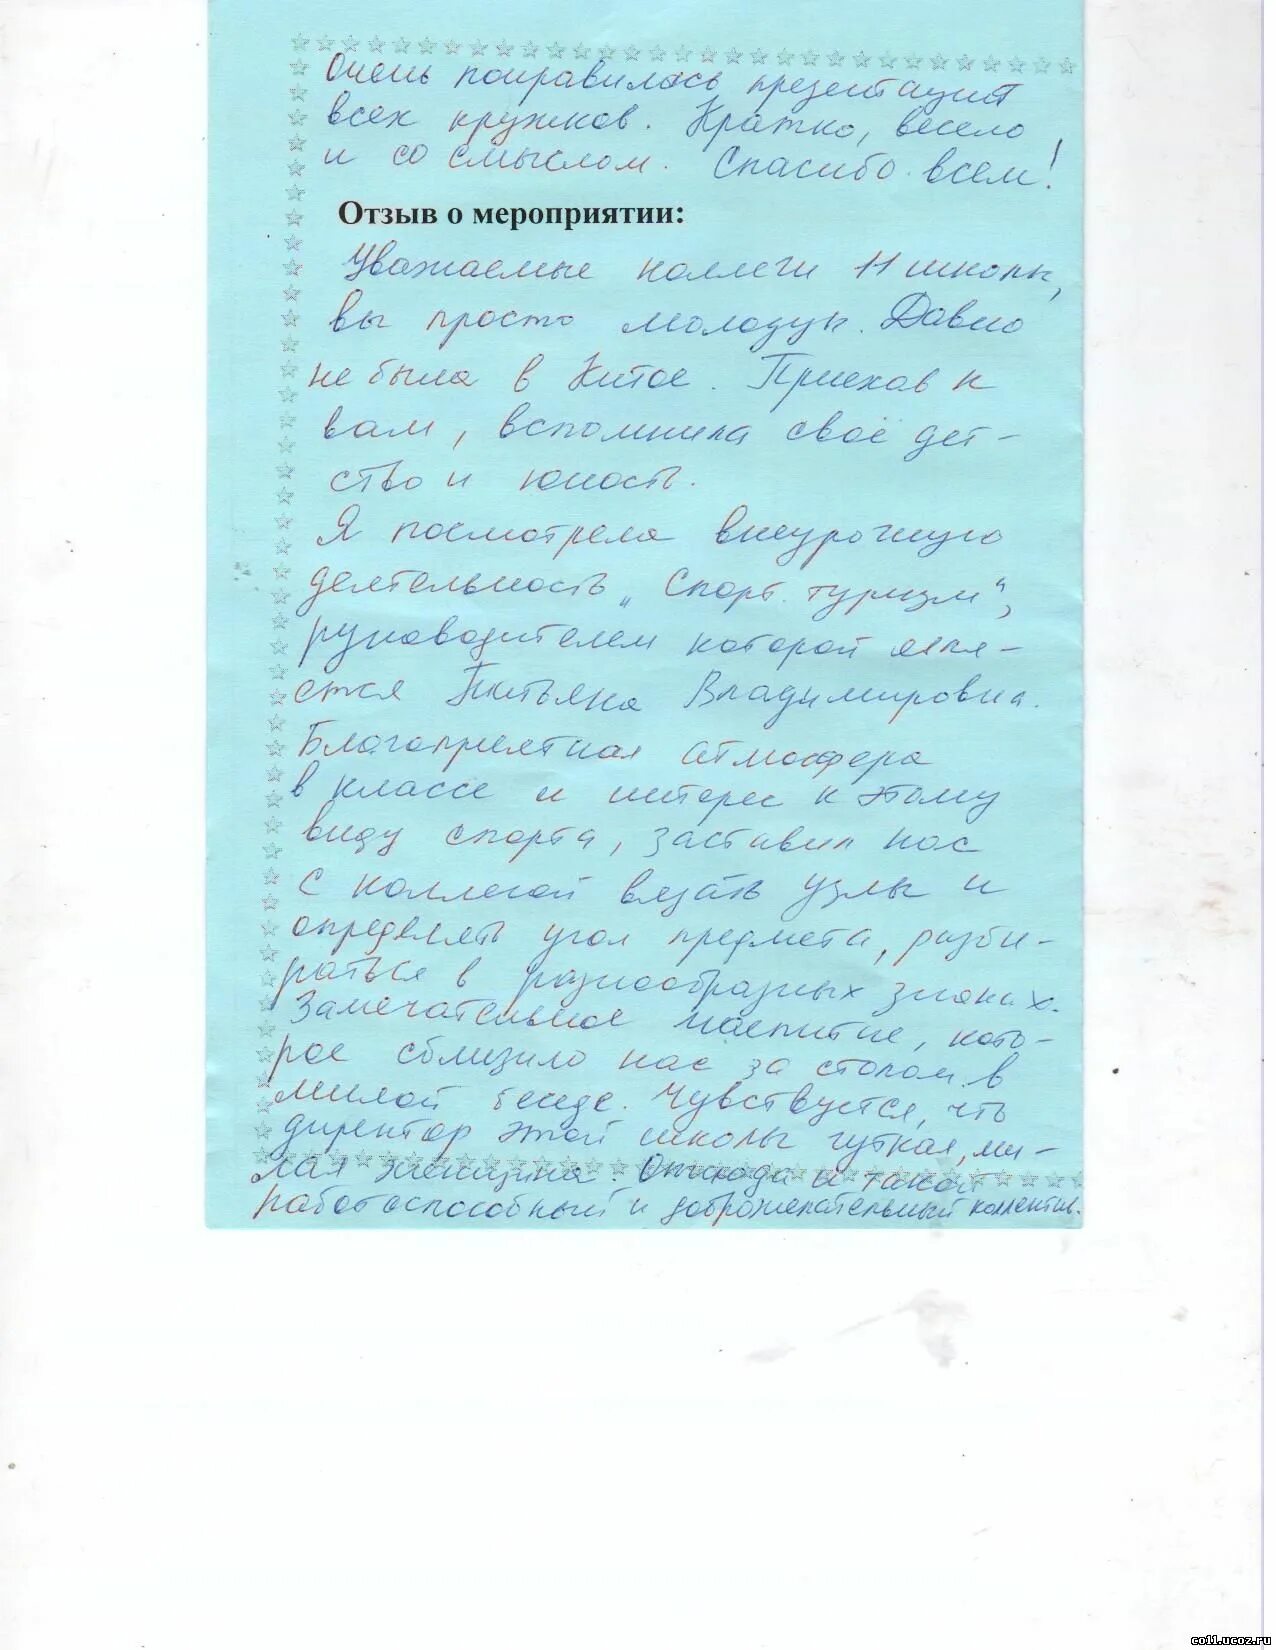 Очень понравилась презентация
всех кружков. Кратко, весело
и со смыслом. Спасибо всем!
Отзыв о мероприятии:
Уважаемые коллеги 11 школы,
вы просто молодцы. Давно
не была в Китое. Приехав к
вам, вспомнила своё дет-
ство и юность.
Я посмотрела внеурочную
деятельность "Спорт. туризм",
руководителем которой явля-
ется Татьяна Владимировна.
Благоприятная атмосфера
в классе и интерес к этому
виду спорта, заставил нас
с коллегой вязать узлы и
определять угол предмета, разби-
раться в разнообразных знаках.
Замечательное чаепитие, кото-
рое сблизило нас за столом в
милой беседе. Чувствуется, что
директор этой школы чуткая, ми-
лая женщина. Отсюда и такой
работоспособный и доброжелательный коллектив.
co11.ucoz.ru